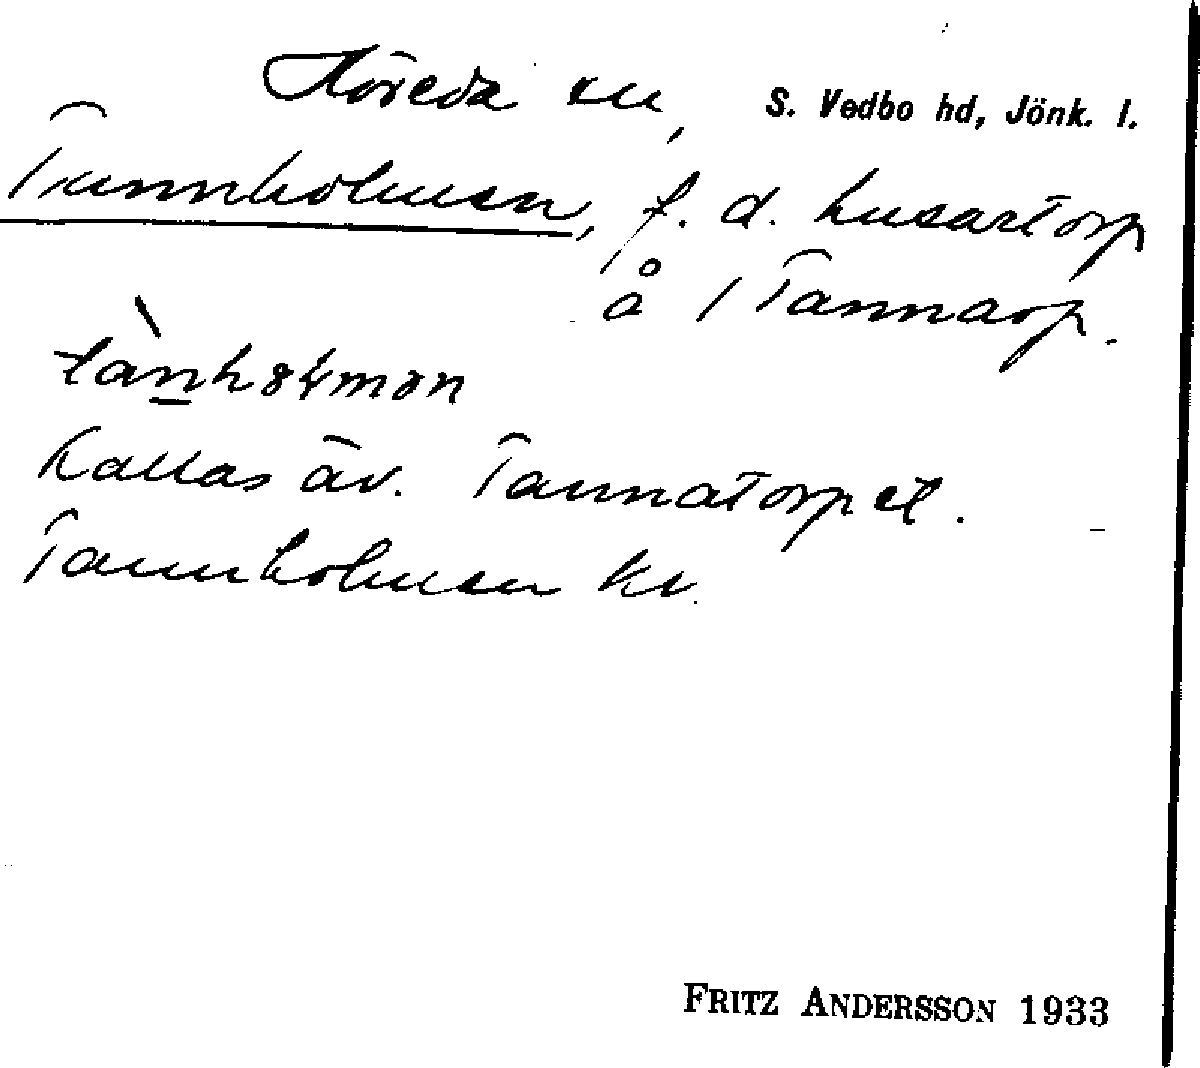 Höreda sn, S. Vedbo hd, Jönk. l.
Tannholmen, f. d. husartorp
å 1 Tannarp.
tànhålmən
Kallas äv. Tannatorpet.
Tannholmen kv.
FRITZ ANDERSSON 1933